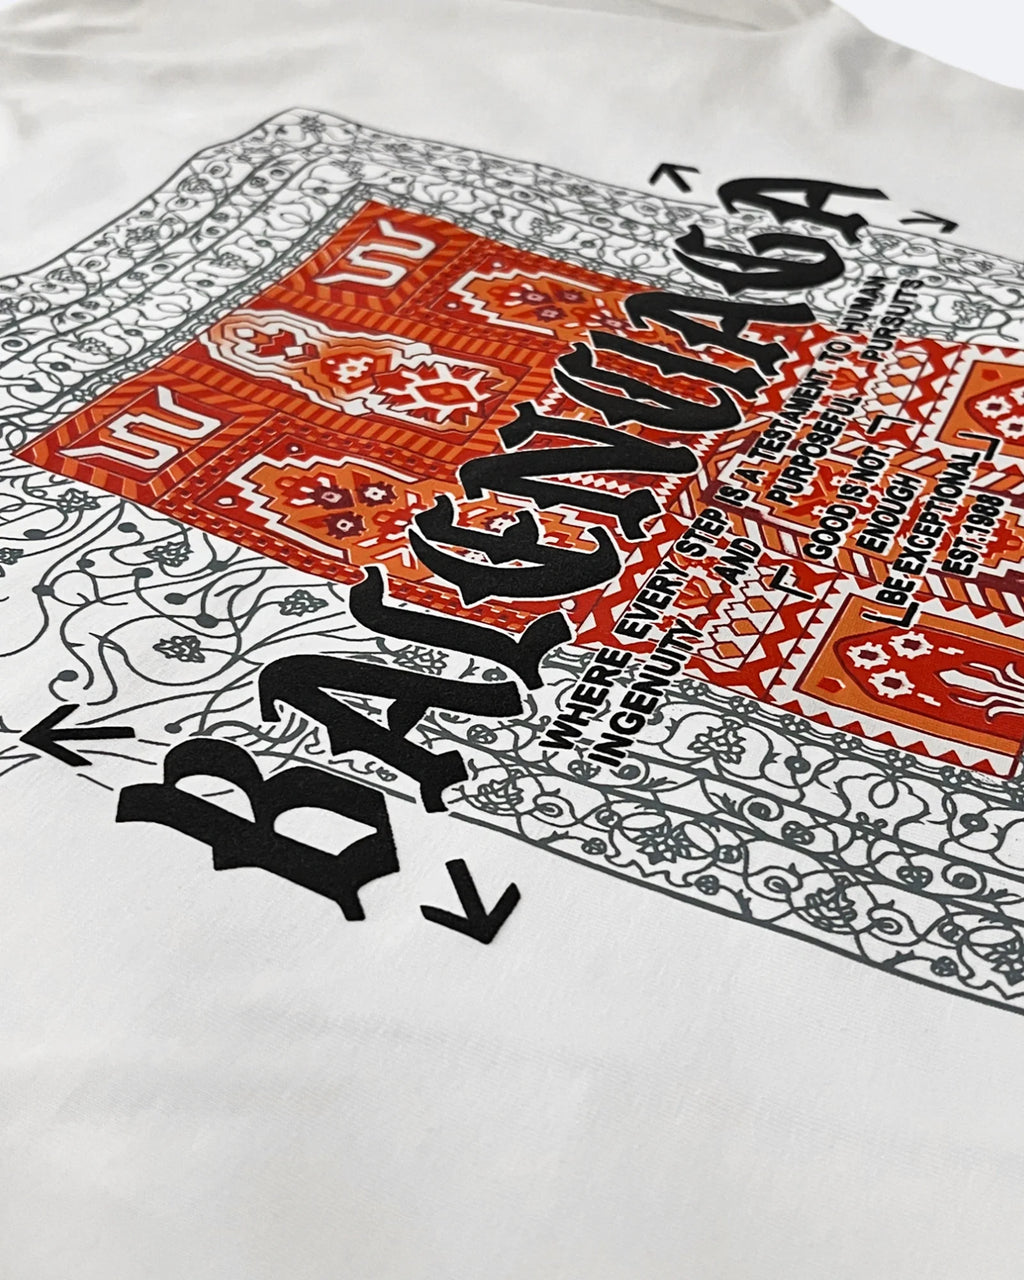 BALENCIAGA
WHERE EVERY STEP IS A TESTAMENT TO HUMAN
INGENUITY AND PURPOSEFUL PURSUITS
GOOD IS NOT
ENOUGH
BE EXCEPTIONAL
EST.1988